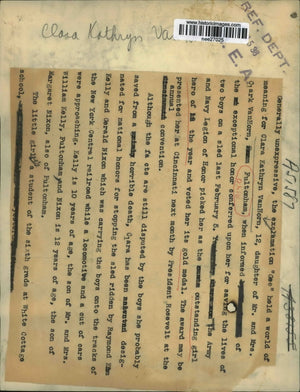 Clara Kathryn Va
www.historicimages.com
nee27025
REF. DEPT
E. A.
Generally unexpressive, the explanation "gee" held a world of
meaning for Clara Kathryn VanHorn, 12, daughter of Mr. and Mrs.
Clark VanHorn, Fultonham, when informed of
the exceptional honor conferred upon her for saving the lives of
two boys on a sled last February 5. The Army
and Navy Legion of Honor picked her as the outstanding girl
hero of the year and voted her its gold medal. The award may be
presented her at Cincinnati next month by President Roosevelt at the
annual convention.
Although the facts are still disputed by the boys she probably
saved from a horrible death, Clara has been desig-
nated for national honors for stopping the sled ridden by Raymond
Kelly and Gerald Nixon which was carrying the boys onto the tracks of
the New York Central railroad while a locomotive and a cut of cars
were approaching. Kelly is 10 years of age, the son of Mr. and Mrs.
William Kelly, Fultonham and Nixon is 12 years of age, the son of
Margaret Nixon, also of Fultonham.
The little girl, a student of the sixth grade at White Cottage
school,